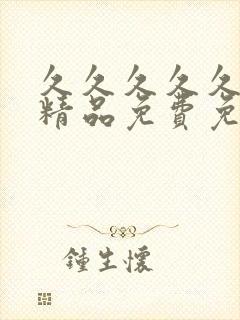 久久久久久
精品免费免
鍾生懷